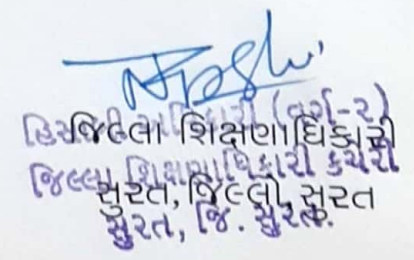 હિસાબી અધિકારી (વર્ગ-૨)
જિલ્લા શિક્ષણાધિકારી
જિલ્લા શિક્ષણાધિકારી કચેરી
સુરત, જિલ્લો, સુરત
સુરત, જિ. સુરત.